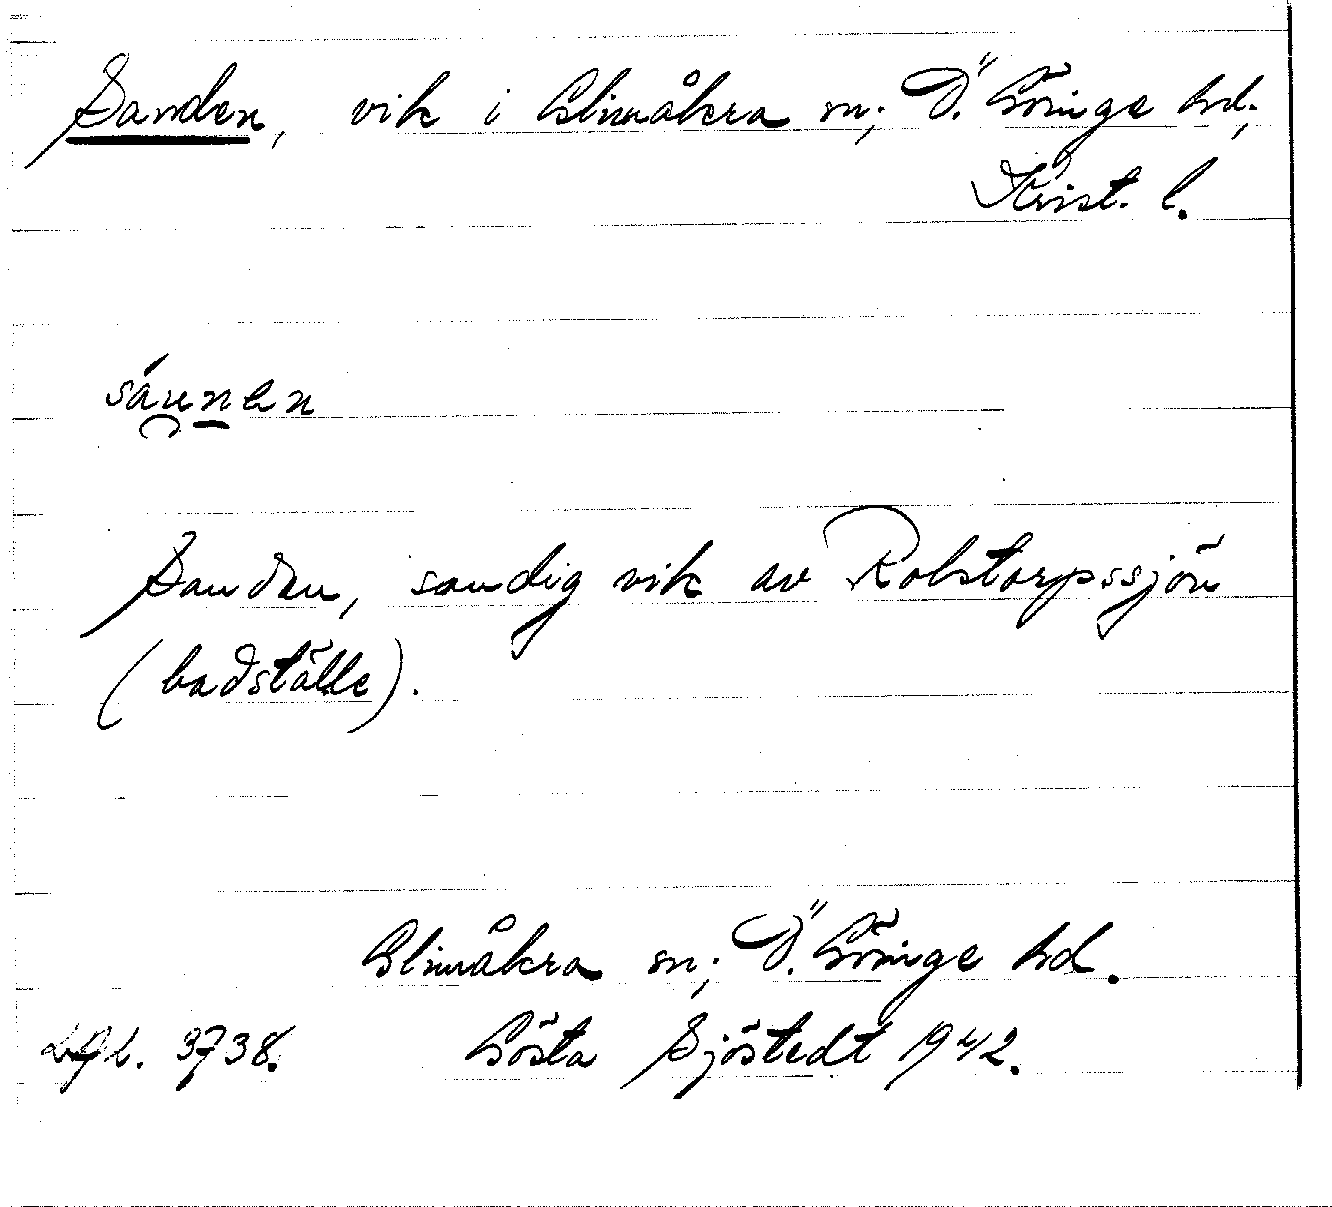 Sanden, vik i Glimåkra sn; Ö. Göinge hd,
Krist. l.
sáu̯n̲en
Sanden, sandig vik av Rolstorpssjön
(badställe).
Glimåkra sn; Ö. Göinge hd.
3738. Gösta Sjöstedt 1942.